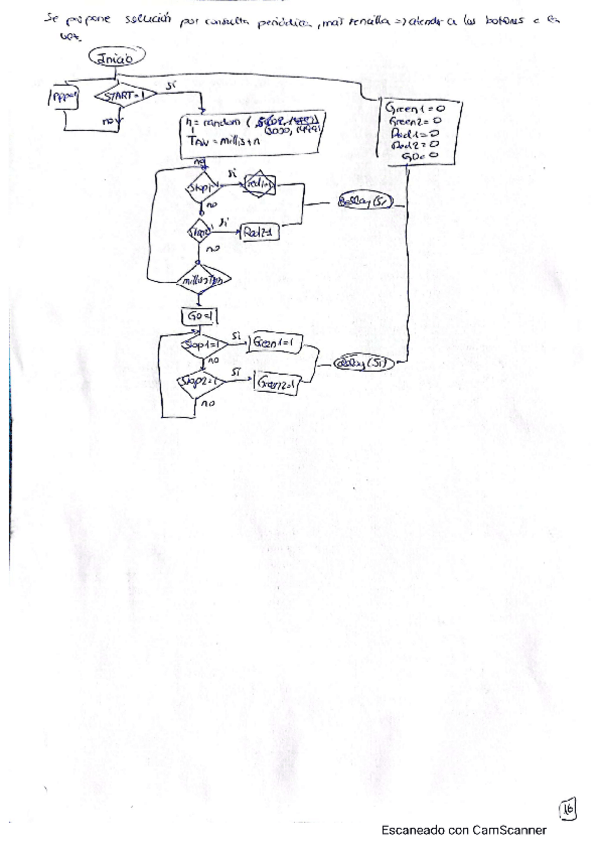 Se propone solución por consulta periódica, más sencilla => atender a los botones a la
vez.
Inicio
START=1
si
no
n = random (
3000, 14999)
TAN = millis + n
Green1=0
Green2=0
Red1=0
Red2=0
GO=0
no
Stop1
si
Red1=1
no
Stop2
si
Red2=1
no
Delay(5s)
GO=1
Stop1=1
si
Green1=1
no
Stop2=1
si
Green2=1
no
Delay(5s)
16
Escaneado con CamScanner